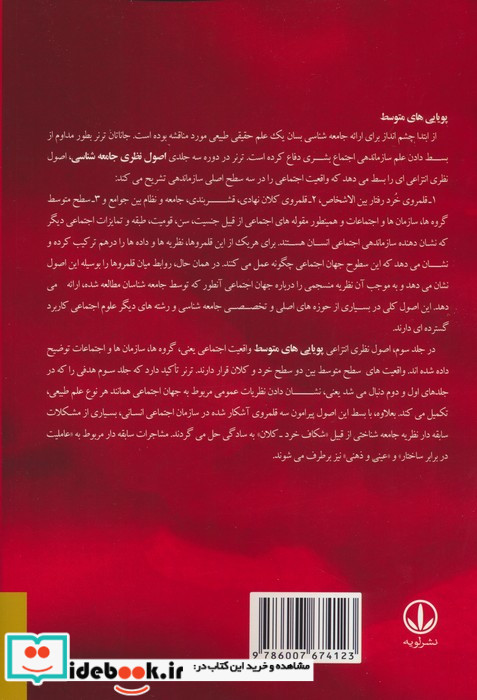 پویایی های متوسط
از ابتدا چشم انداز برای ارائه جامعه شناسی بسان یک علم حقیقی طبیعی مورد مناقشه بوده است. جاناتان ترنر بطور مداوم از
بسط دادن علم سازماندهی اجتماع بشری دفاع کرده است. ترنر در دوره سه جلدی اصول نظری جامعه شناسی، اصول
نظری انتزاعی ای را بسط می دهد که واقعیت اجتماعی را در سه سطح اصلی سازماندهی تشریح می کند:
۱- قلمروی خُرد رفتار بین الاشخاص، ۲- قلمروی کلان نهادی، قشربندی، جامعه و نظام بین جوامع و ۳- سطح متوسط
گروه ها، سازمان ها و اجتماعات و همینطور مقوله های اجتماعی از قبیل جنسیت، سن، قومیت، طبقه و تمایزات اجتماعی دیگر
که نشان دهنده سازماندهی اجتماعی انسان هستند. برای هریک از این قلمروها، نظریه ها و داده ها را درهم ترکیب کرده و
نشان می دهد که این سطوح جهان اجتماعی چگونه عمل می کنند. در همان حال، روابط میان قلمروها را بوسیله این اصول
نشان می دهد و به موجب آن نظریه منسجمی را درباره جهان اجتماعی آنطور که توسط جامعه شناسان مطالعه شده، ارائه می
دهد. این اصول کلی در بسیاری از حوزه های اصلی و تخصصی جامعه شناسی و رشته های دیگر علوم اجتماعی کاربرد
گسترده ای دارند.
در جلد سوم، اصول نظری انتزاعی پویایی های متوسط واقعیت اجتماعی یعنی، گروه ها، سازمان ها و اجتماعات توضیح
داده شده اند. واقعیت های سطح متوسط بین دو سطح خرد و کلان قرار دارند. ترنر تأکید دارد که جلد سوم هدفی را که در
جلدهای اول و دوم دنبال می شد یعنی، نشان دادن نظریات عمومی مربوط به جهان اجتماعی همانند هر نوع علم طبیعی،
تکمیل می کند. بعلاوه، با بسط این اصول پیرامون سه قلمروی آشکار شده در سازمان اجتماعی انسانی، بسیاری از مشکلات
سابقه دار نظریه جامعه شناختی از قبیل «شکاف خرد - کلان» به سادگی حل می گردند. مشاجرات سابقه دار مربوط به «عاملیت
در برابر ساختار» و «عینی و ذهنی» نیز برطرف می شوند.
نشرلویه
9 786007 674123
مشاهده و خرید این کتاب در:
idebook.ir